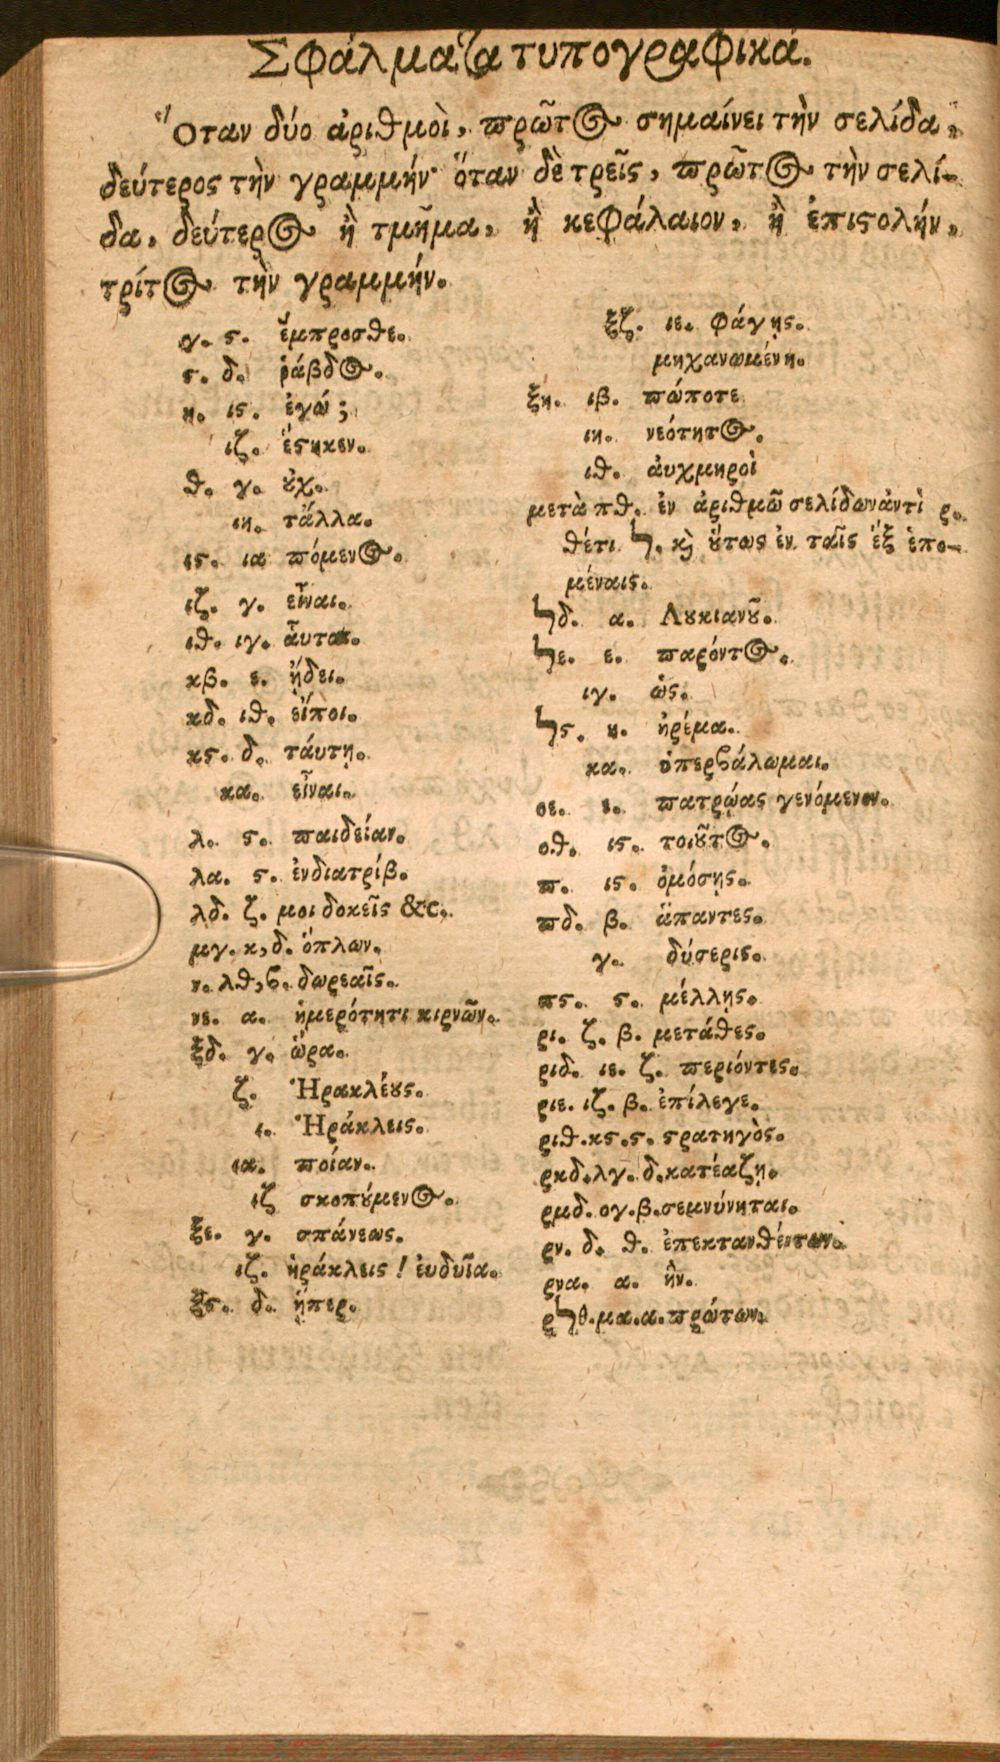 Σφάλματα τυπογραφικά.
Ὅταν δύο ἀριθμοὶ, πρῶτος σημαίνει τὴν σελίδα,
δεύτερος τὴν γραμμήν· ὅταν δὲ τρεῖς, πρῶτος τὴν σελί-
δα, δεύτερος ἢ τμῆμα, ἢ κεφάλαιον, ἢ ἐπιστολήν,
τρίτος τὴν γραμμήν.
γ. ϛ. ἔμπροσθε.
ϛ. δ. ῥάβδος.
η. ιϛ. ἐγώ;
ιζ. ἕστηκεν.
θ. γ. οὐχ.
ιη. τἄλλα.
ιϛ. ια πόμενος.
ιζ. γ. εἶναι.
ιθ. ιγ. αὗται.
κβ. ε. ᾔδει.
κδ. ιθ. εἴποι.
κϛ. δ. ταύτῃ.
κα. εἶναι.
λ. ϛ. παιδείαν.
λα. ϛ. ἐνδιατρίβ.
λδ. ζ. μοι δοκεῖς &c.
μγ. κ, δ. ὅπλων.
ν. λθ, ϐ. δωρεαῖς.
νε. α. ἡμερότητι κιρνῶν.
ξδ. γ. ὥρα.
ζ. Ἡρακλέους.
ι. Ἡράκλεις.
ια. ποίαν.
ιζ σκοπούμενος.
ξε. γ. σπάνεως.
ιζ. ἡράκλεις! ἐυδυῖα.
ξϛ. δ. ᾗπερ.
ξζ. ιε. φάγῃς.
μηχανωμένη.
ξη. ιβ. πώποτε
ιη. νεότητος.
ιθ. ἀυχμηροὶ
μετὰ πθ. ἐν ἀριθμῷ σελίδων ἀντὶ ρ.
θέτι ϟ. καὶ οὕτως ἐν ταῖς ἓξ ἑπο-
μέναις.
ϟδ. α. Λουκιανοῦ.
ϟε. ε. παρόντος.
ιγ. ὡς.
ϟϛ. η. ἠρέμα.
κα. ὑπερϐάλωμαι.
οε. ε. πατρῴας γενόμενον.
οθ. ιϛ. τοιοῦτος.
π. ιϛ. ὀμόσῃς.
πδ. β. ἅπαντες.
γ. δύσερις.
πϛ. ϛ. μέλλῃς.
ρι. ζ. β. μετάθες.
ριδ. ιε. ζ. περιόντες.
ριε. ιζ. β. ἐπίλεγε.
ριθ. κϛ. ϛ. στρατηγὸς.
ρκδ. λγ. δ. κατέαζῃ.
ρμδ. ογ. β. σεμνύνηται.
ρν. δ. θ. ἐπεκτανθέντων.
ρνα. α. ἦν.
ρϟθ. μα. α. πρώτων.